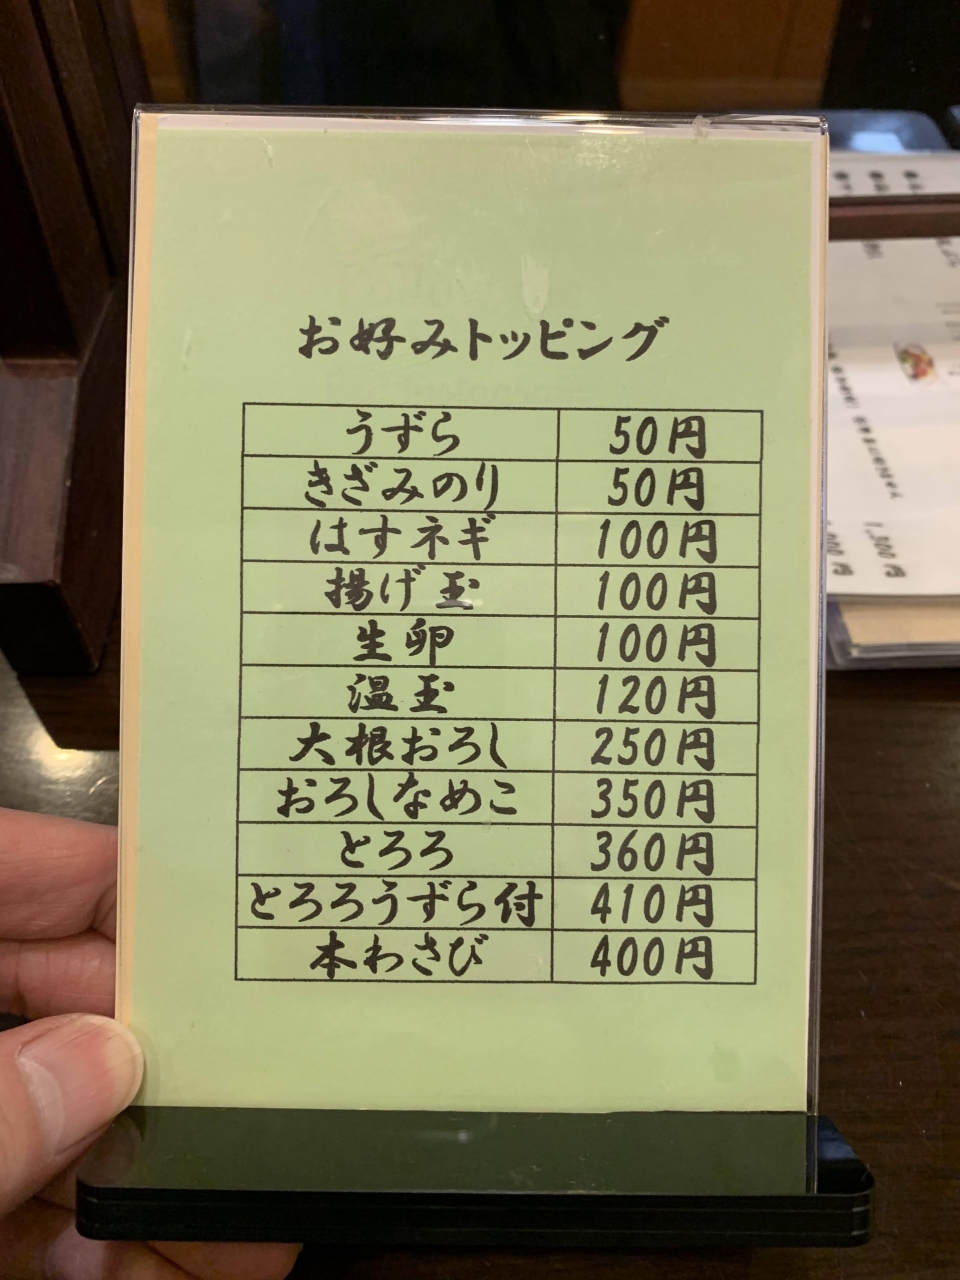 お好みトッピング
うずら 50円
きざみのり 50円
はすネギ 100円
揚げ玉 100円
生卵 100円
温玉 120円
大根おろし 250円
おろしなめこ 350円
とろろ 360円
とろろうずら付 410円
本わさび 400円
1,300円